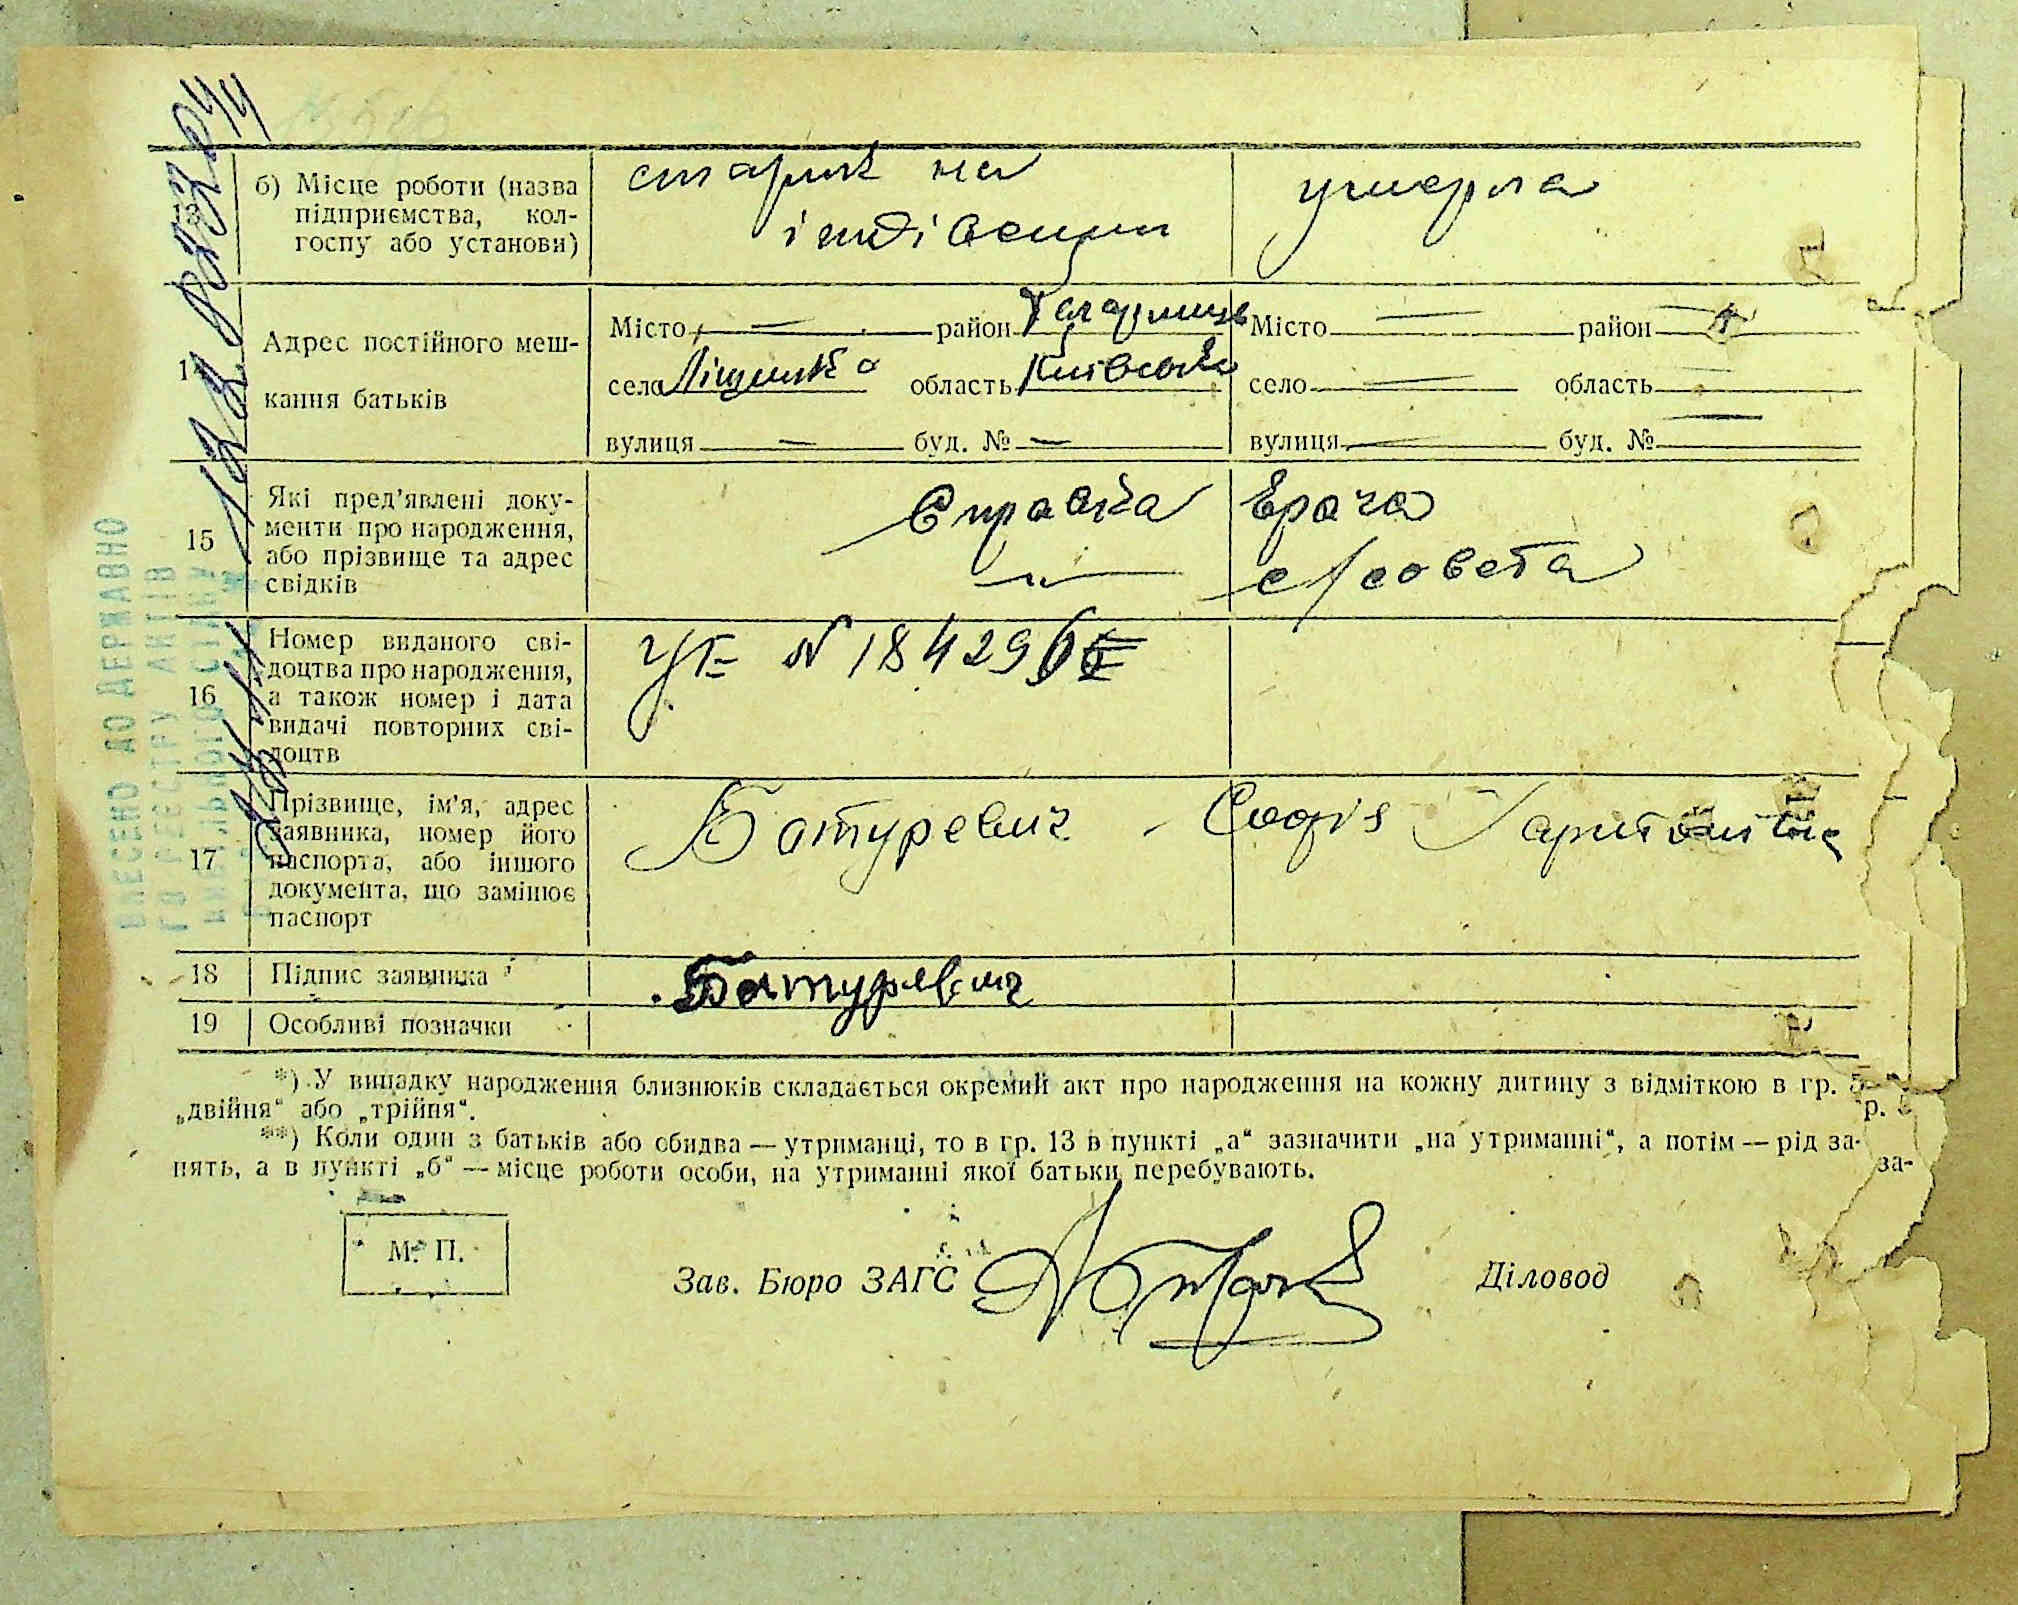 13 б) Місце роботи (назва підприємства, колгоспу або установи)
старик на
умерла
14 Адрес постійного мешкання батьків
Місто — район
село область Київська
вулиця — буд. № —
Місто — район —
село — область —
вулиця — буд. № —
15 Які пред'явлені документи про народження, або прізвище та адрес свідків
Справка Врача
—„— с/совета
16 Номер виданого свідоцтва про народження, а також номер і дата видачі повторних свідоцтв
N 184296
17 Прізвище, ім'я, адрес заявника, номер його паспорта, або іншого документа, що замінює паспорт
Батуревич Софія
18 Підпис заявника
Батуревич
19 Особливі позначки
*) У випадку народження близнюків складається окремий акт про народження на кожну дитину з відміткою в гр. 5—
„двійня“ або „трійня“.
**) Коли один з батьків або обидва — утриманці, то в гр. 13 в пункті „а“ зазначити „на утриманні“, а потім — рід за-
нять, а в пункті „б“ — місце роботи особи, на утриманні якої батьки перебувають.
М. П.
Зав. Бюро ЗАГС
Діловод
ВНЕСЕНО ДО ДЕРЖАВНО
ГО РЕЄСТРУ АКТІВ